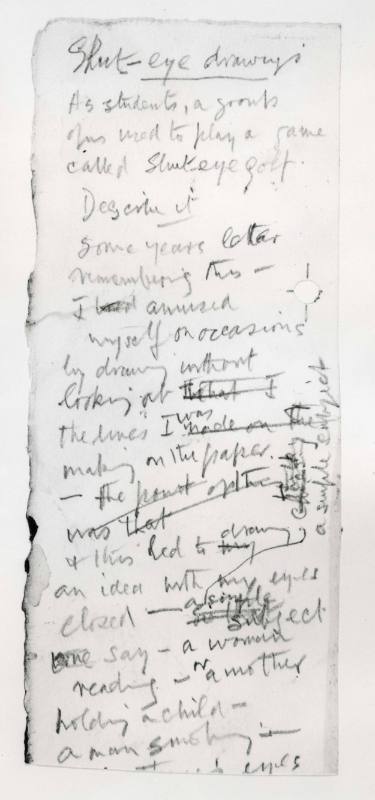 Shut-eye drawings
As students, a group
of us used to play a game
called Shut eye golf.
Describe it
Some years later
remembering this –
I had amused
myself on occasions
by drawing without
looking at that I
the lines I was made on the
making on the paper.
– the point of the
was that
& this led to my drawing
an idea with my eyes
closed – a simple
subject
one say – a woman
reading – or a mother
holding a child –
a man smoking –
eyes
a simple subject